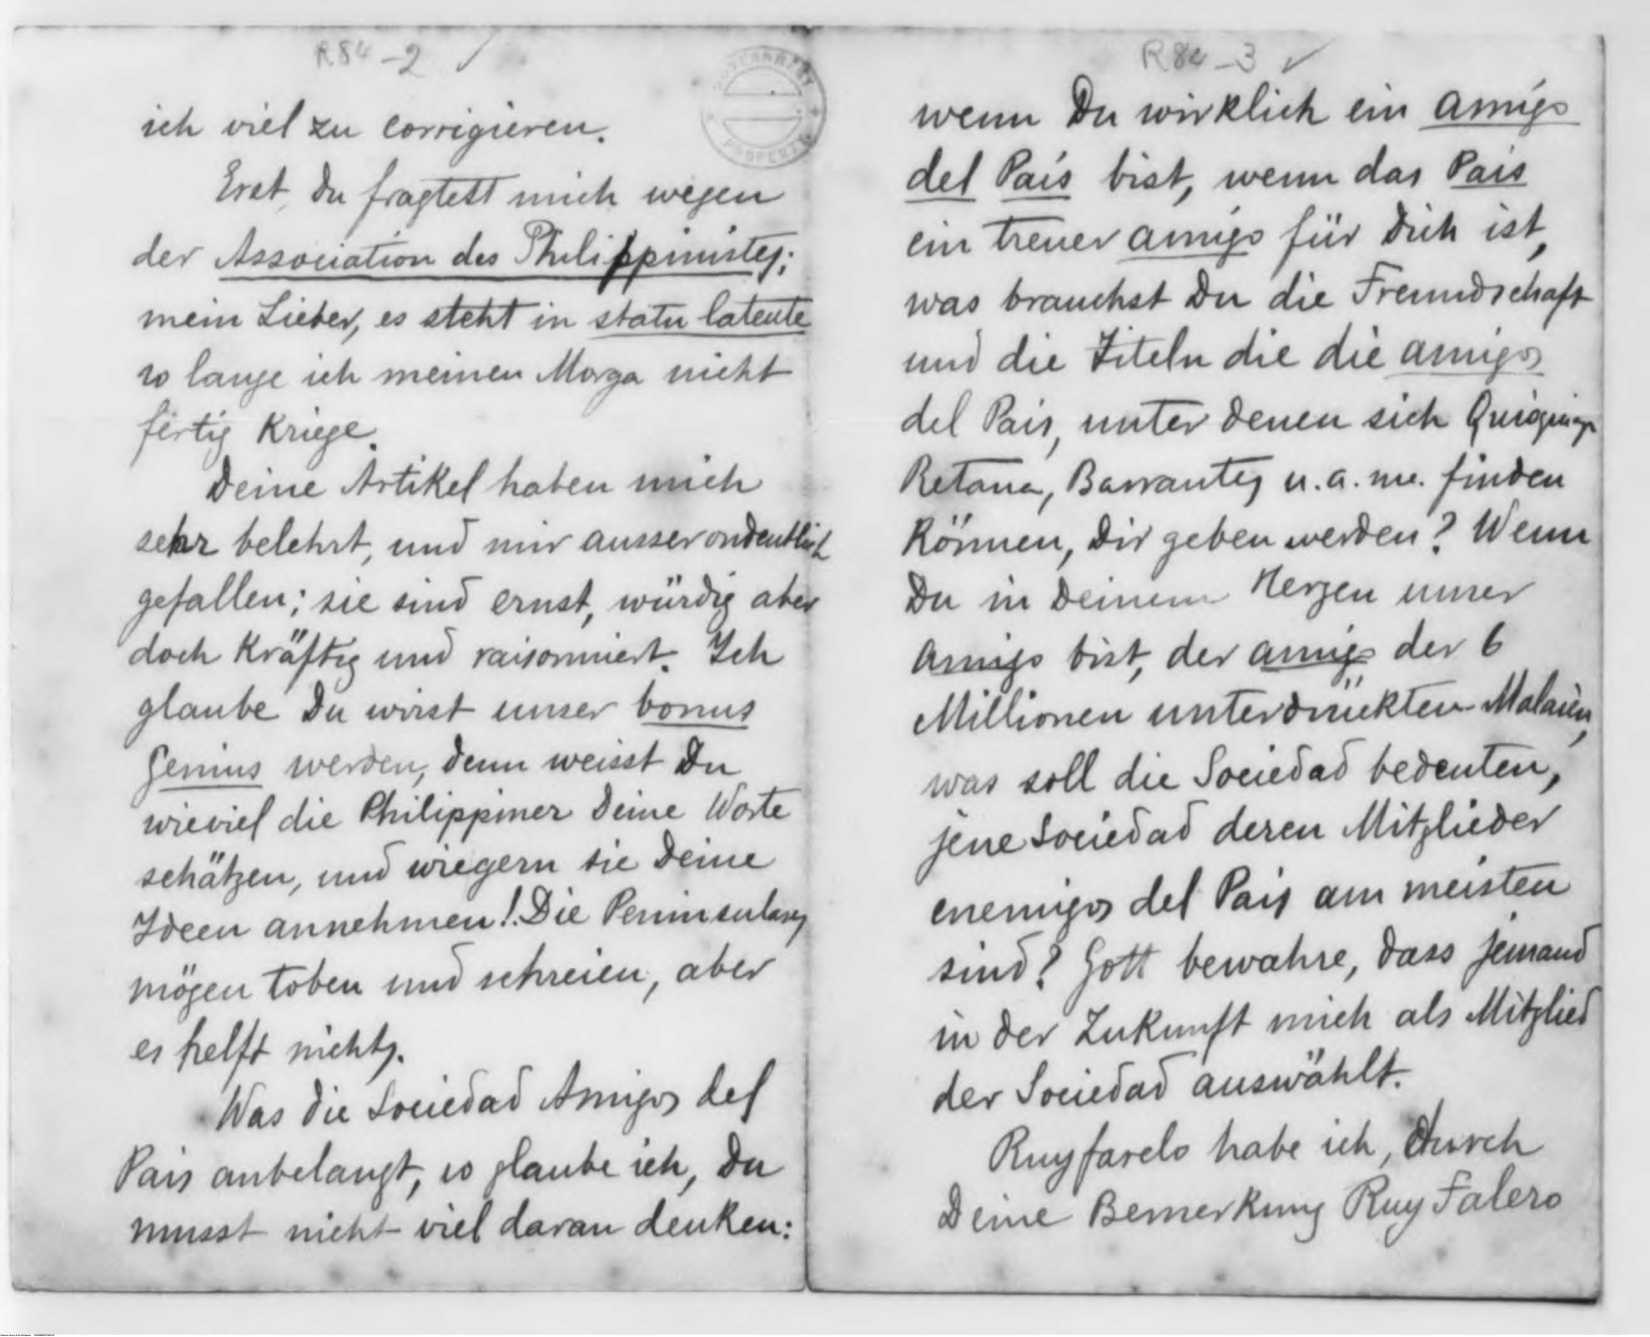 R84-2
GOVERNMENT PROPERTY
ich viel zu corrigieren.
Erst, Du fragtest mich wegen
der Association des Philippinistes;
mein Lieber, es steht in statu latente
so lange ich meinen Morga nicht
fertig kriege.
Deine Artikel haben mich
sehr belehrt, und mir ausserordentlich
gefallen; sie sind ernst, würdig aber
doch kräftig und raisonniert. Ich
glaube Du wirst unser bonus
Genius werden, denn weisst Du
wieviel die Philippiner Deine Worte
schätzen, und wiegern sie Deine
Ideen annehmen! Die Peninsulares
mögen toben und schreien, aber
es helft nichts.
Was die Sociedad Amigos del
Pais anbelangt, so glaube ich, Du
musst nicht viel daran denken:
R84-3
wenn Du wirklich ein amigo
del País bist, wenn das Pais
ein treuer amigo für Dich ist,
was brauchst Du die Freundschaft
und die Titeln die die amigos
del Pais, unter denen sich Quioquiap
Retana, Barrantes u. a. m. finden
können, Dir geben werden? Wenn
Du in Deinem Herzen unser
Amigo bist, der amigo der 6
Millionen unterdrückten Malaien,
was soll die Sociedad bedeuten,
jene Sociedad deren Mitglieder
enemigos del Pais am meisten
sind? Gott bewahre, dass jemand
in der Zukunft mich als Mitglied
der Sociedad auswählt.
Ruyfarelo habe ich, durch
Deine Bemerkung Ruy Falero